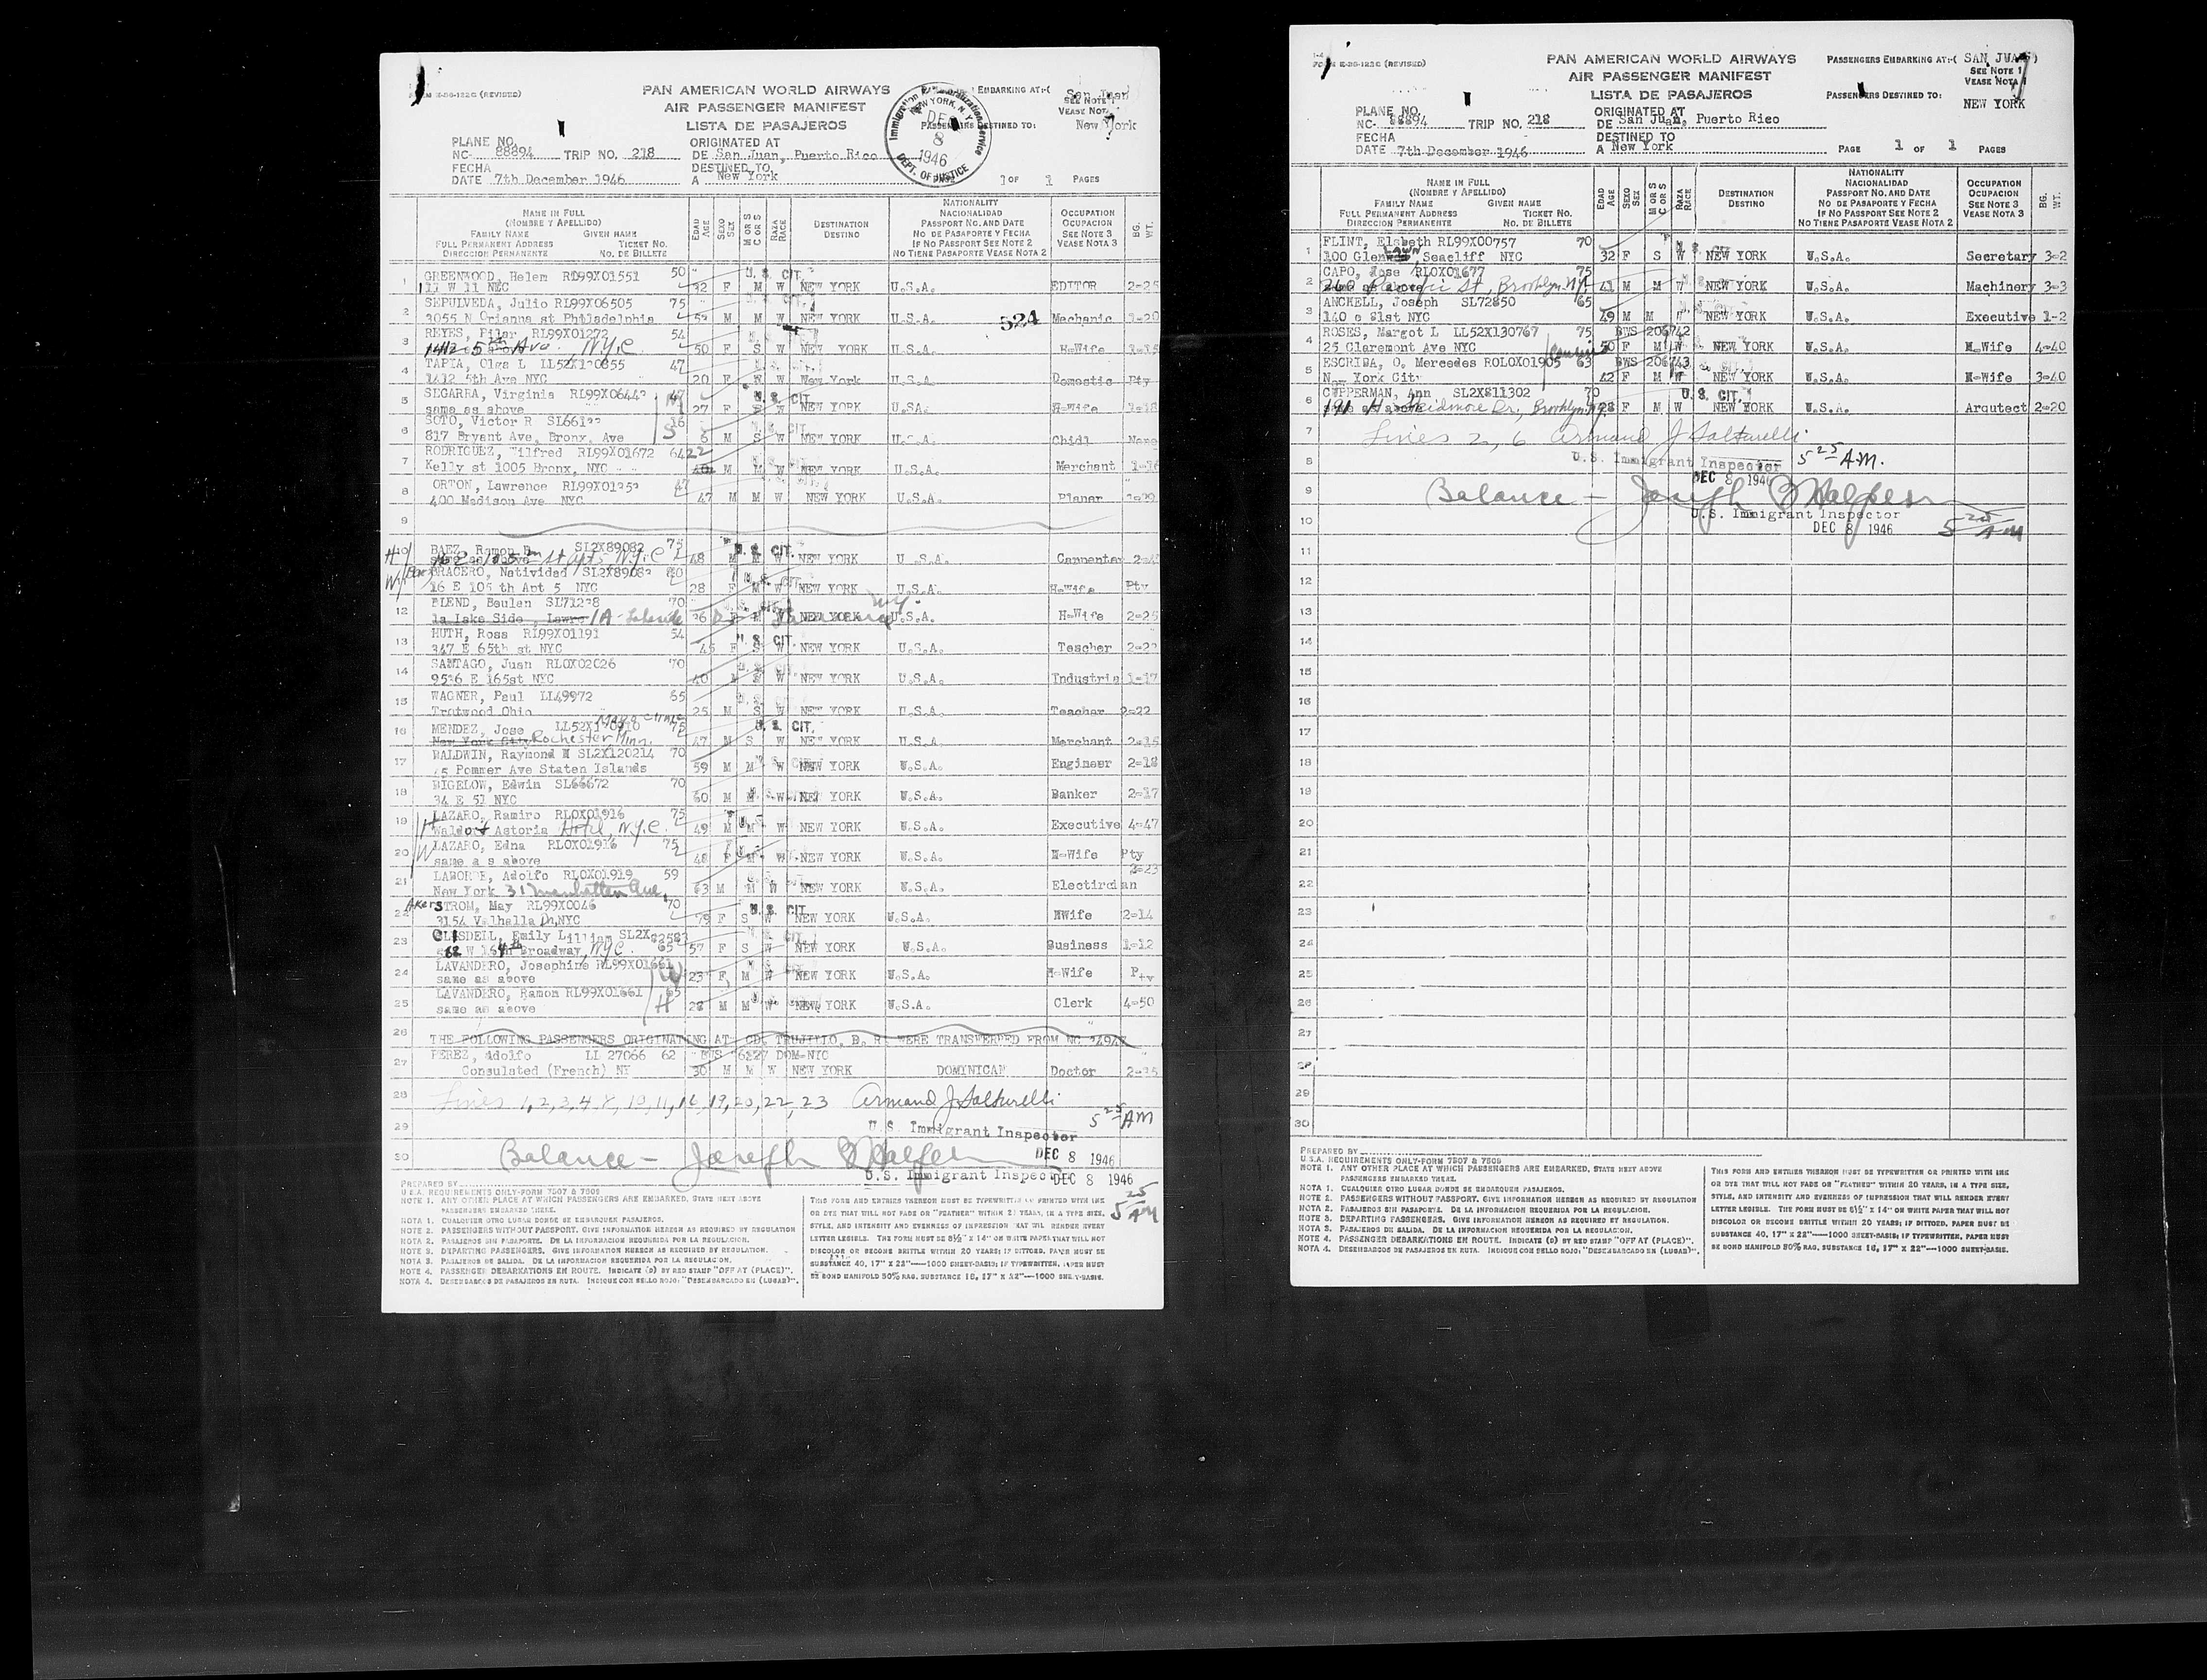 FORM E-86-122G (REVISED)
PAN AMERICAN WORLD AIRWAYS
AIR PASSENGER MANIFEST
LISTA DE PASAJEROS
EMBARKING AT:-( San Juan
SEE NOTE 1
VEASE NOTA
PASSENGERS DESTINED TO:
New York
Immigration & Naturalization Service
NEW YORK, N.Y.
DEC
8
1946
DEPT. OF JUSTICE
PLANE NO.
NC- 88894 TRIP NO. 218
ORIGINATED AT
DE San Juan, Puerto Rico
FECHA
DATE 7th December 1946
DESTINED TO
A New York
1 OF 1 PAGES
NAME IN FULL
(NOMBRE Y APELLIDO)
FAMILY NAME GIVEN NAME
FULL PERMANENT ADDRESS TICKET NO.
DIRECCION PERMANENTE NO. DE BILLETE
EDAD AGE
SEXO SEX
M OR S C OR S
RAZA RACE
DESTINATION
DESTINO
NATIONALITY
NACIONALIDAD
PASSPORT NO. AND DATE
NO DE PASAPORTE Y FECHA
IF NO PASSPORT SEE NOTE 2
NO TIENE PASAPORTE VEASE NOTA 2
OCCUPATION
OCUPACION
SEE NOTE 3
VEASE NOTA 3
BG. WT.
1 GREENWOOD, Helem RL99X01551 50 U. S. CIT.
11 W 11 NYC 32 F M W NEW YORK U.S.A. EDITOR 2-25
2 SEPULVEDA, Julio RL99X06505 75
3055 N Orianna st Philadelphia 52 M M W NEW YORK U.S.A. 524 Mechanic 1-20
3 REYES, Pilar RL99X01272 54
1412 5th Ave, N.Y.C 50 F S W NEW YORK U.S.A. H-Wife 1-15
4 TAPIA, Olga L LL52X130855 47
1412 5th Ave NYC 20 F W New York U.S.A Domestic Pty
5 SEGARRA, Virginia RL99X06443 47
same as above 27 F W NEW YORK U.SA. H-Wife 1-18
6 SOTO, Victor R SL66132 16
817 Bryant Ave, Bronx, Ave 6 M S W NEW YORK U.S.A. Chidl None
7 RODRIGUEZ, Wilfred RL99X01672 64 22
Kelly st 1005 Bronx, NYC M M W NEW YORK U.S.A. Merchant 1-16
8 ORTON, Lawrence RL99X01353 47
400 Madison Ave NYC 47 M M W NEW YORK U.S.A. Planer
9
H 10 BAEZ, Ramon B SL2X89082 75 U. S. CIT.
N.Y.C 48 M M W NEW YORK U.S.A. Carpenter
W BRACERO, Natividad SL2X89083 80
16 E 105 th Apt 5 NYC 28 F M W NEW YORK U.S.A. H-Wife Pty
12 BLEND, Beulen SL71238 70
la Lake Side, Lawre 1A-Lakeside 36 F M W NEW YORK U.S.A. H-Wife 2-25
13 HUTH, Ross RL99X01191 54 U. S. CIT.
347 E 65th st NYC 45 F S W NEW YORK U.S.A. Teacher 2-22
14 SANTAGO, Juan RLOX02026 70
9536 E 165st NYC 40 M W NEW YORK U.S.A. Industria 1-17
15 WAGNER, Paul LL49972 65
Trotwood Ohio 25 M S W NEW YORK U.S.A. Teacher 2-22
16 MENDEZ, Jose Mayo Clinic 75 U. S. CIT.
New York City Rochester Minn. 47 M S W NEW YORK U.S.A Merchant 2-15
17 BALDWIN, Raymond W SL2X120214 70
45 Pommer Ave Staten Islands 59 M M W NEW YORK U.S.A. Engineer 2-18
18 BIGELOW, Edwin SL66672 70
34 E 51 NYC 60 M M W NEW YORK U.S.A. Banker 2-17
19 H LAZARO, Ramiro RLOX01916 75
Waldorf Astoria Hotel, N.Y.C. 49 M M W NEW YORK U.S.A. Executive 4-47
20 W LAZARO, Edna RLOX01916 75
same a s above 48 F M W NEW YORK U.S.A. H-Wife Pty
21 LABORDE, Adolfo RLOX01919 59 2-23
New York 31 Manhattan Ave, 63 M M W NEW YORK U.S.A. Electircian
22 AkerSTROM, May RL99X0046 70 U. S. CIT
3154 Valhalla Dr, NYC 79 F S W NEW YORK U.S.A. HWife 2-14
23 GLISDELL, Emily Lillian SL2X
Broadway, NYC. 65 57 F S W NEW YORK U.S.A. Business 1-12
24 LAVANDERO, Josephine RL99X01661 W
same as above 23 F M W NEW YORK U.S.A. H-Wife Pty
25 LAVANDERO, Ramon RL99X01661 65 H
same as above 28 M M W NEW YORK U.S.A. Clerk 4-50
26 THE FOLLOWING PASSENGERS ORIGINATING AT CD. TRUJILLO, D. R. WERE TRANSFERRED FROM NC
27 PEREZ, Adolfo LL 27066 62 BWS 6227 DOM-NYC
Consulated (French) NY 30 M M W NEW YORK DOMINICAN Doctor 2-35
28 Lines 1,2,3,4,8,10,11,16,19,20,22,23 Armand J Salturelli
29 U.S. Immigrant Inspector 5 25 AM
DEC 8 1946
30 Balance - Joseph Halpern
U.S. Immigrant Inspector DEC 8 1946
5 25 AM
PREPARED BY
U.S.A. REQUIREMENTS ONLY-FORM 7507 & 7509
NOTE 1. ANY OTHER PLACE AT WHICH PASSENGERS ARE EMBARKED, STATE NEXT ABOVE
PASSENGERS EMBARKED THERE.
NOTA 1. CUALQUIER OTRO LUGAR DONDE SE EMBARQUEN PASAJEROS.
NOTE 2. PASSENGERS WITHOUT PASSPORT. GIVE INFORMATION HEREON AS REQUIRED BY REGULATION
NOTA 2. PASAJEROS SIN PASAPORTE. DE LA INFORMACION REQUERIDA POR LA REGULACION.
NOTE 3. DEPARTING PASSENGERS. GIVE INFORMATION HEREON AS REQUIRED BY REGULATION.
NOTA 3. PASAJEROS DE SALIDA. DE LA INFORMACION REQUERIDA POR LA REGULACION.
NOTE 4. PASSENGER DEBARKATIONS EN ROUTE. INDICATE (D) BY RED STAMP "OFF AT (PLACE)".
NOTA 4. DESEMBARCOS DE PASAJEROS EN RUTA. INDIQUE CON SELLO ROJO: "DESEMBARCADO EN (LUGAR)".
THIS FORM AND ENTRIES THEREON MUST BE TYPEWRITTEN OR PRINTED WITH INK
OR DYE THAT WILL NOT FADE OR "FEATHER" WITHIN 20 YEARS, IN A TYPE SIZE,
STYLE, AND INTENSITY AND EVENNESS OF IMPRESSION THAT WILL RENDER EVERY
LETTER LEGIBLE. THE FORM MUST BE 8½" x 14" ON WHITE PAPER THAT WILL NOT
DISCOLOR OR BECOME BRITTLE WITHIN 20 YEARS; IF DITTOED, PAPER MUST BE
SUBSTANCE 40, 17" X 22"—1000 SHEET-BASIS; IF TYPEWRITTEN, PAPER MUST
BE BOND MANIFOLD 50% RAG, SUBSTANCE 16, 17" X 22"—1000 SHEET-BASIS.
FORM E-86-122G (REVISED)
PAN AMERICAN WORLD AIRWAYS
AIR PASSENGER MANIFEST
LISTA DE PASAJEROS
PASSENGERS EMBARKING AT:-( SAN JUAN)
SEE NOTE 1
VEASE NOTA 1
PASSENGERS DESTINED TO:
NEW YORK
PLANE NO.
NC- 88894 TRIP NO. 218
ORIGINATED AT
DE San Juan, Puerto Rico
FECHA
DATE 7th December 1946
DESTINED TO
A New York
PAGE 1 OF 1 PAGES
NAME IN FULL
(NOMBRE Y APELLIDO)
FAMILY NAME GIVEN NAME
FULL PERMANENT ADDRESS TICKET NO.
DIRECCION PERMANENTE NO. DE BILLETE
EDAD AGE
SEXO SEX
M OR S C OR S
RAZA RACE
DESTINATION
DESTINO
NATIONALITY
NACIONALIDAD
PASSPORT NO. AND DATE
NO DE PASAPORTE Y FECHA
IF NO PASSPORT SEE NOTE 2
NO TIENE PASAPORTE VEASE NOTA 2
OCCUPATION
OCUPACION
SEE NOTE 3
VEASE NOTA 3
BG. WT.
1 FLINT, Elsbeth RL99X00757 70
100 Glenlawn, Seacliff NYC 32 F S W NEW YORK U.S.A. Secretary 3-2
2 CAPO, Jose RLOX01677 75
260 St, Brooklyn NY 41 M M W NEW YORK U.S.A. Machinery 3-3
3 ANCHELL, Joseph SL72850 65
140 e 81st NYC 49 M M W NEW YORK U.S.A. Executive 1-2
4 ROSES, Margot L LL52X130767 75 BWS 206742
25 Claremont Ave NYC 50 F M W NEW YORK U.S.A. H-Wife 4-40
5 ESCRIBA, O. Mercedes ROLOXO1905 63 BWS 206743
New York City 42 F M W NEW YORK U.S.A. H-Wife 3-40
6 CUPPERMAN, Ann SL2X811302 70 U. S. CIT.
Skidmore Dr, Brooklyn NY 28 F M W NEW YORK U.S.A. Arqutect 2-20
7 Lines 2, 6 Armand J Salturelli
8 U.S. Immigrant Inspector 5 25 A.M.
DEC 8 1946
9 Balance - Joseph Halpern
10 U.S. Immigrant Inspector
DEC 8 1946 5 25 AM
11
12
13
14
15
16
17
18
19
20
21
22
23
24
25
26
27
28
29
30
PREPARED BY
U.S.A. REQUIREMENTS ONLY-FORM 7507 & 7509
NOTE 1. ANY OTHER PLACE AT WHICH PASSENGERS ARE EMBARKED, STATE NEXT ABOVE
PASSENGERS EMBARKED THERE.
NOTA 1. CUALQUIER OTRO LUGAR DONDE SE EMBARQUEN PASAJEROS.
NOTE 2. PASSENGERS WITHOUT PASSPORT. GIVE INFORMATION HEREON AS REQUIRED BY REGULATION
NOTA 2. PASAJEROS SIN PASAPORTE. DE LA INFORMACION REQUERIDA POR LA REGULACION.
NOTE 3. DEPARTING PASSENGERS. GIVE INFORMATION HEREON AS REQUIRED BY REGULATION.
NOTA 3. PASAJEROS DE SALIDA. DE LA INFORMACION REQUERIDA POR LA REGULACION.
NOTE 4. PASSENGER DEBARKATIONS EN ROUTE. INDICATE (D) BY RED STAMP "OFF AT (PLACE)".
NOTA 4. DESEMBARCOS DE PASAJEROS EN RUTA. INDIQUE CON SELLO ROJO: "DESEMBARCADO EN (LUGAR)".
THIS FORM AND ENTRIES THEREON MUST BE TYPEWRITTEN OR PRINTED WITH INK
OR DYE THAT WILL NOT FADE OR "FEATHER" WITHIN 20 YEARS, IN A TYPE SIZE,
STYLE, AND INTENSITY AND EVENNESS OF IMPRESSION THAT WILL RENDER EVERY
LETTER LEGIBLE. THE FORM MUST BE 8½" x 14" ON WHITE PAPER THAT WILL NOT
DISCOLOR OR BECOME BRITTLE WITHIN 20 YEARS; IF DITTOED, PAPER MUST BE
SUBSTANCE 40, 17" X 22"—1000 SHEET-BASIS; IF TYPEWRITTEN, PAPER MUST
BE BOND MANIFOLD 50% RAG, SUBSTANCE 16, 17" X 22"—1000 SHEET-BASIS.